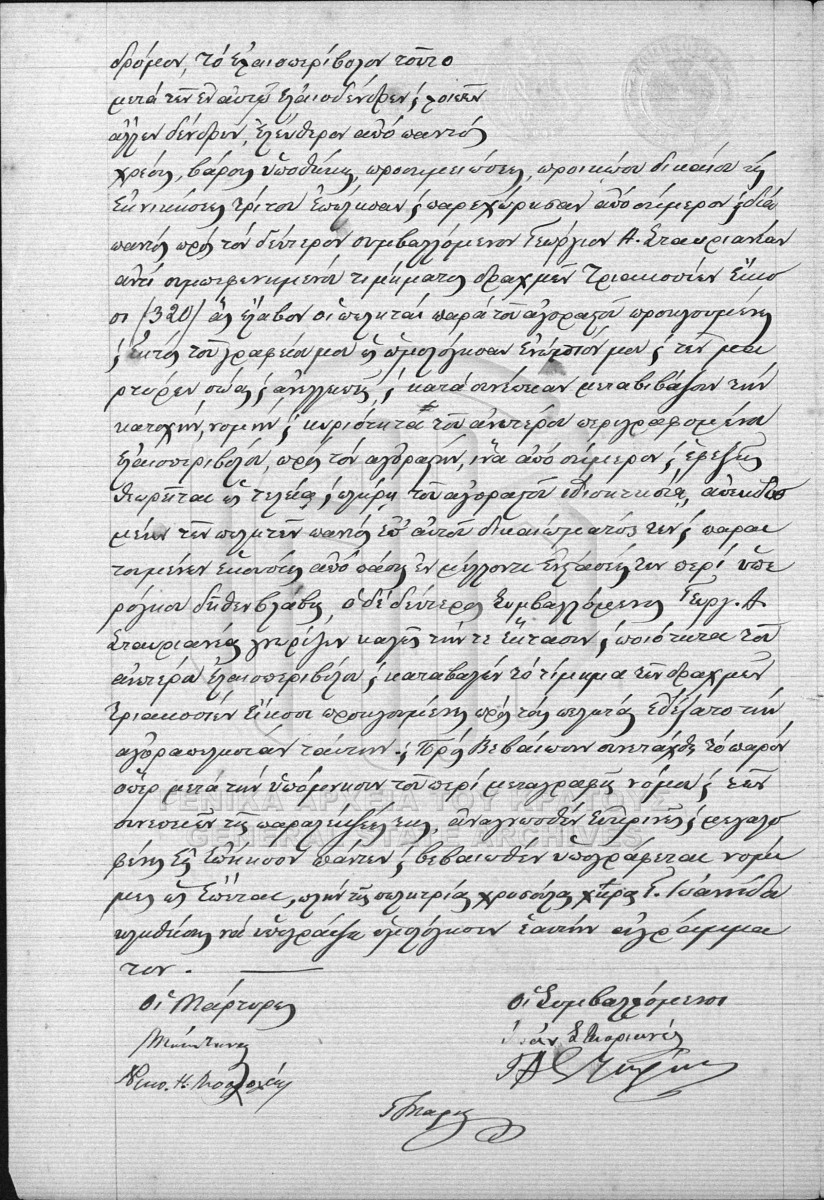 δρόμον, τό ἐλαιοπερίβολον τοῦτο
μετά τῶν ἐν αὐτῷ ἐλαιοδένδρων ς λοιπῶν
ἄλλων δένδρων, ἐλεύθερον ἀπό παντός
χρέους, βάρους ὑποθήκης, προσημειώσεως, προικώου δικαίου τῆς
ἐκνικήσεως τρίτου ἐπώλησαν ς παρεχώρησαν ἀπό σήμερον ς διά
παντός πρός τόν δεύτερον συμβαλλόμενον Γεώργιον Α. Σταυριανέαν
ἀντί συμπεφωνημένου τιμήματος δραχμῶν τριακοσίων εἴκο
σι (320) ἅς ἔλαβον οἱ πωληταί παρά τοῦ ἀγοραστοῦ προηγουμένως
ς ἐκτός τοῦ γραφείου μου ὡς ὡμολόγησαν ἐνώπιόν μου ς τῶν μαρ
τύρων σώας ς ἀνελλιπεῖς, ς κατά συνέπειαν μεταβιβάζουν τήν
κατοχήν, νομήν ς κυριότητα τοῦ ἀνωτέρου περιγραφομένου
ἐλαιοπεριβόλου, πρός τόν ἀγοραστήν, ἵνα ἀπό σήμερον ς ἐφεξῆς
θεωρεῖται ὡς τελεία ς πλήρης τοῦ ἀγοραστοῦ ἰδιοκτησία, ἀπεκδυο
μένων τῶν πωλητῶν παντός ἐπ' αὐτοῦ δικαιώματός των ς παραι
τουμένων ἑκουσίως ἀπό πάσης ἐν μέλλοντι ἐνστάσεώς των περί ὑπε
ρόγκου δῆθεν βλάβης, ὁ δέ δεύτερος συμβαλλόμενος Γεώργ. Α.
Σταυριανέας γνωρίζων καλῶς τήν τε ἔκτασιν ς ποιότητα τοῦ
ἀνωτέρου ἐλαιοπεριβόλου ς καταβαλών τό τίμημα τῶν δραχμῶν
τριακοσίων εἴκοσι προηγουμένως πρός τούς πωλητάς ἐδέξατο τήν
ἀγοραπωλησίαν ταύτην. ς Πρός βεβαίωσιν συνετάχθη τό παρόν
ὅπερ μετά τήν ὑπόμνησιν τοῦ περί μεταγραφῆς νόμου ς τῶν
συνεπειῶν τῆς παραλείψεώς της, ἀναγνωσθέν εὐκρινῶς ς μεγαλο
φώνως εἰς ἐπήκοον πάντων ς βεβαιωθέν ὑπογράφεται νομί
μως ὡς ἕπεται, πλήν τῆς πωλητρίας Χρυσούλας χήρας Γ. Ἰωαννίδα
κληθείσης νά ὑπογράψῃ ὡμολόγησεν ἑαυτήν ἀγράμμα
τον. —
Οἱ Μάρτυρες
Οἱ Συμβαλλόμενοι
ΓΕΝΙΚΑ ΑΡΧΕΙΑ ΤΟΥ ΚΡΑΤΟΥΣ
GENERAL STATE ARCHIVES